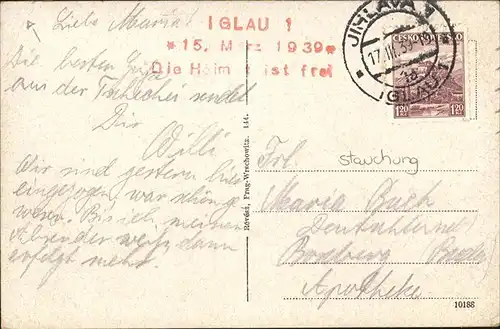 Liebe Maria!
IGLAU 1
*15. März 1939*
Die Heimat ist frei
JIHLAVA 1
17.III.39-19
1a
IGLAU 1
ČESKO-SLOVENSKO
1.20 1.20
Die besten Grüße
aus der Tschechei sendet
Dir
Willi
Wir sind gestern hier
eingezogen, war schön ge-
wesen. Bis ich meinen
Absender weiß, dann
erfolgt mehr.
Rövési, Prag-Wrschowitz. 144.
Frl.
Stauchung
Maria
Apotheke
10188